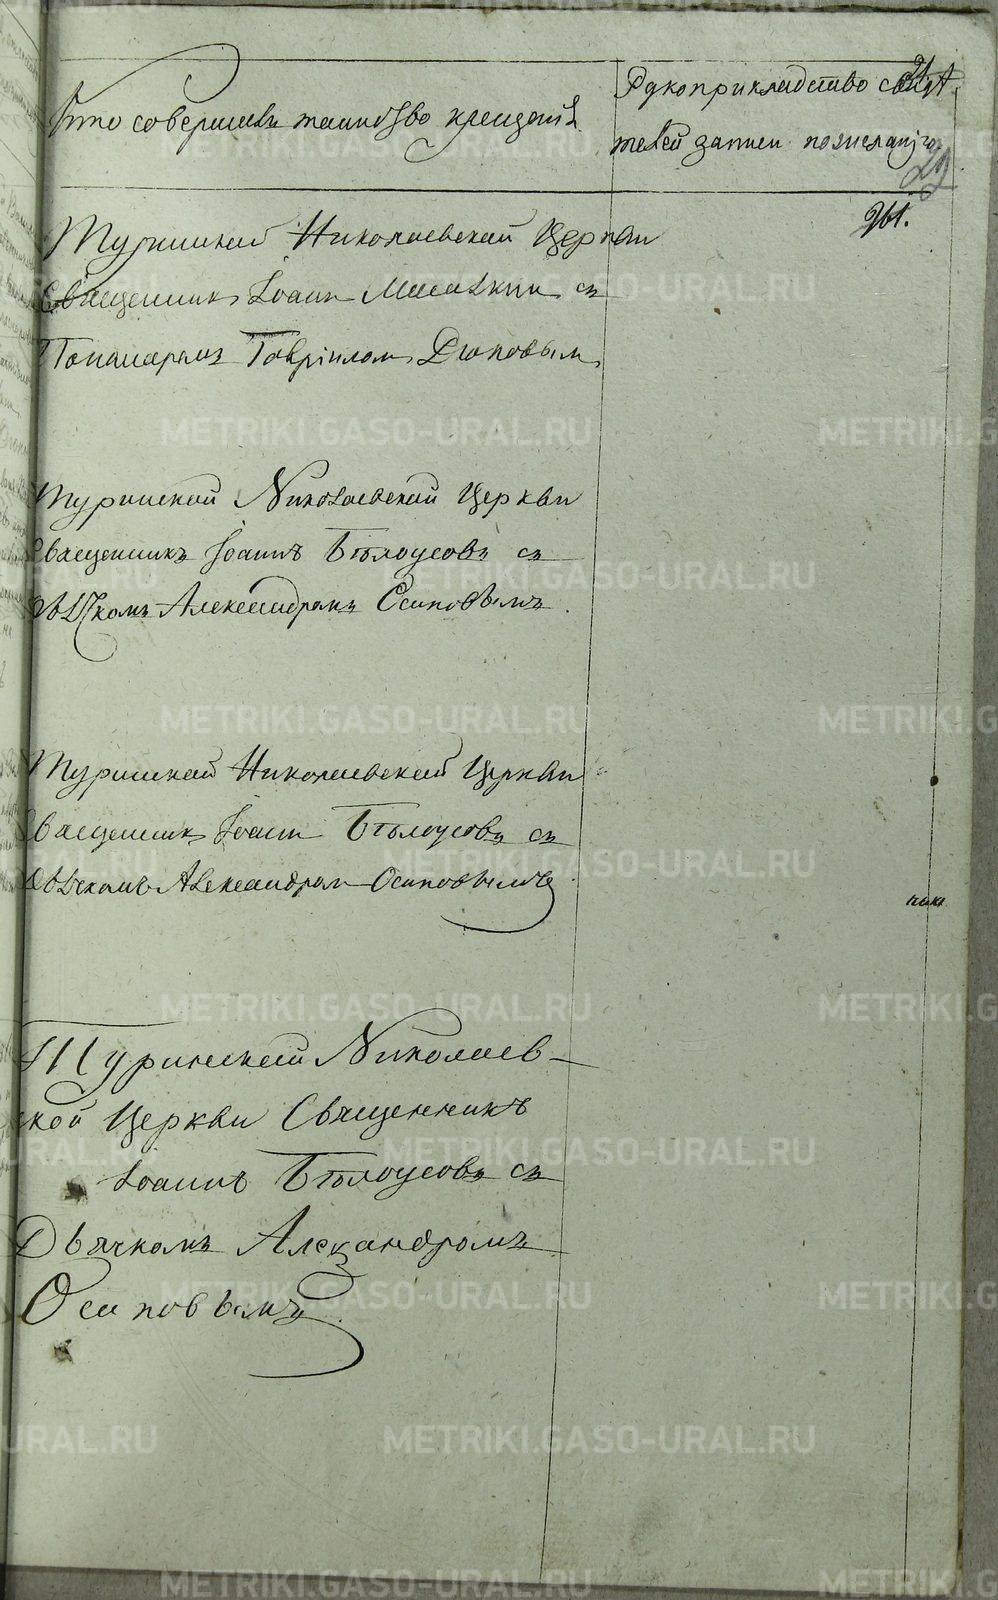 Кто совершалъ таинство крещенія
Рукоприкладство свидѣ
телей записи по желанію
21
22
Туринской Николаевской Церкви
Священникъ Іоаннъ съ
Пономаремъ Гавріиломъ Дюповым
Туринской Николаевской Церкви
Священникъ Іоаннъ Бѣлоусовъ съ
Дьячкомъ Александромъ Осиповымъ.
Туринской Николаевской Церкви
Священникъ Іоаннъ Бѣлоусовъ съ
Дьячкомъ Александромъ Осиповымъ
Туринской Николаев-
ской Церкви Священникъ
Іоаннъ Бѣлоусовъ съ
Дьячкомъ Александромъ
Осиповымъ.
METRIKI.GASO-URAL.RU